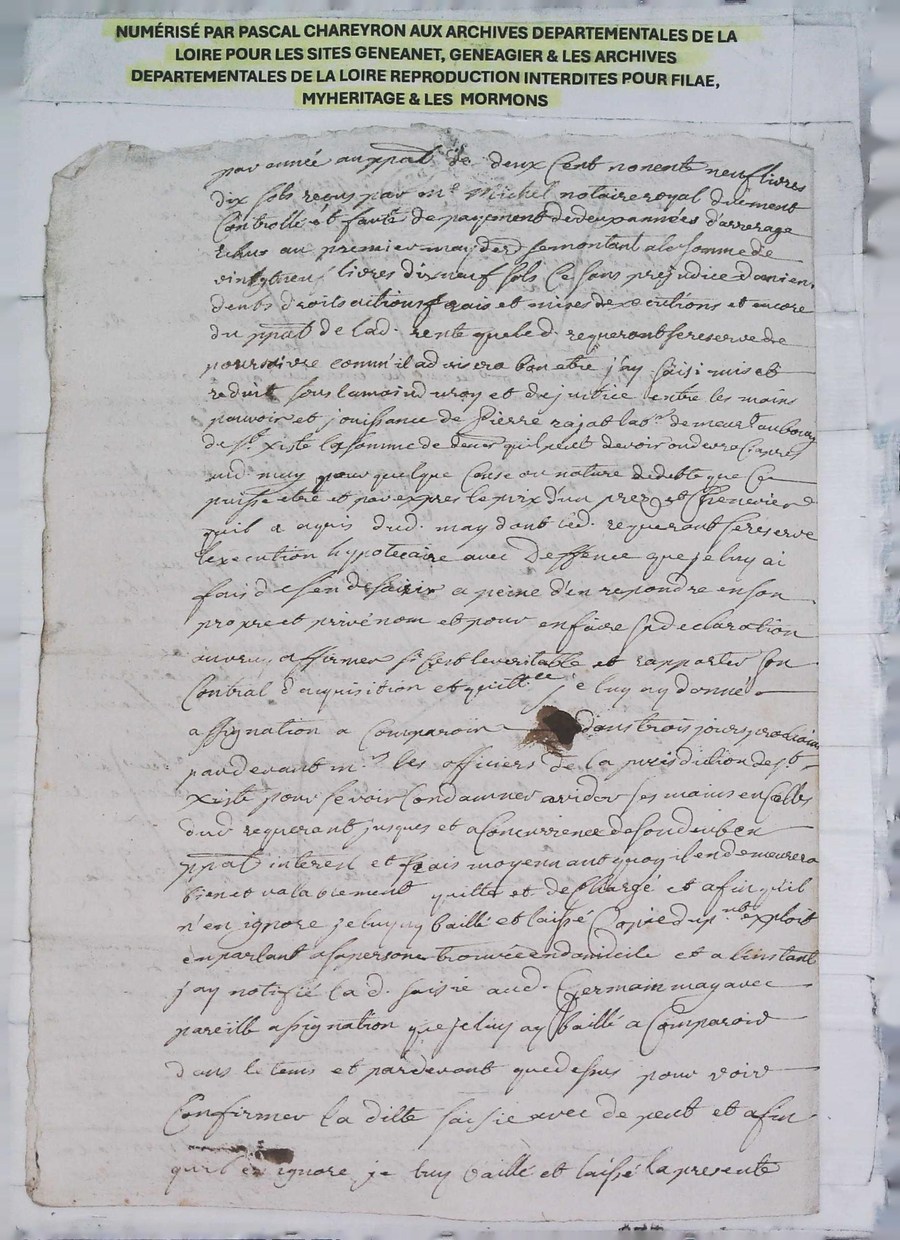 NUMÉRISÉ PAR PASCAL CHAREYRON AUX ARCHIVES DEPARTEMENTALES DE LA
LOIRE POUR LES SITES GENEANET, GENEAGIER & LES ARCHIVES
DEPARTEMENTALES DE LA LOIRE REPRODUCTION INTERDITES POUR FILAE,
MYHERITAGE & LES MORMONS
par année au ppāl de deux cent nonente neuf livres
dix sols reçus par me Michel notaire royal duement
Controllé et faute de payement de deux années d'arrerage
echus au premier may der se montant a la somme de
livres dix neuf sols Ce sans prejudice
droits actions frais et mises dexecutions et encore
du ppāl de lad. rente que led. requerant se reserve de
poursuivre comm'il advisera bon etre j'ay saisi mis et
reduit sous la main du roy et de justice entre les mains
pouvoir et jouissance de Pierre rajat lab.r demeurt au bourg
de st xiste la somme de qu'il peut devoir ou devra Ciapres
aud. may pour quelque Cause ou nature de debte que Ce
puisse etre et par expres le prix d'un prez et Chenevier
qu'il a aquis dud. may dont led. requerant se reserve
l'execution hypotecaire avec deffence que je luy ai
fais de s'en desaisir a peine d'en repondre en son
propre et privé nom et pour en faire sa declaration
affirmer si C'est le veritable et rapporter son
Contrat d'acquisition et quittce je luy ay donné
assignation a Comparoir dans trois jours prochains
pardevant mrs les officiers de la jurisdiction de st
xiste pour se voir Condamner a vider ses mains en Celles
dud requerant jusques et a Concurrence de son deub en
ppāl interest et frais moyennant quoy il en demeurera
bien et valablement quitte et dechargé et afin qu'il
n'en ignore je luy ay baillé et laissé Copie du pnt exploit
en parlant a sa persone trouvée en domicile et a l'instant
j'ay notifié la d. saisie aud. Germain may avec
pareille assignation que je luy ay baillé a Comparoir
dans le tems et pardevant que dessus pour voir
Confirmer la ditte saisie avec depent et afin
qu'il en ignore je luy baillé et laissé la presente